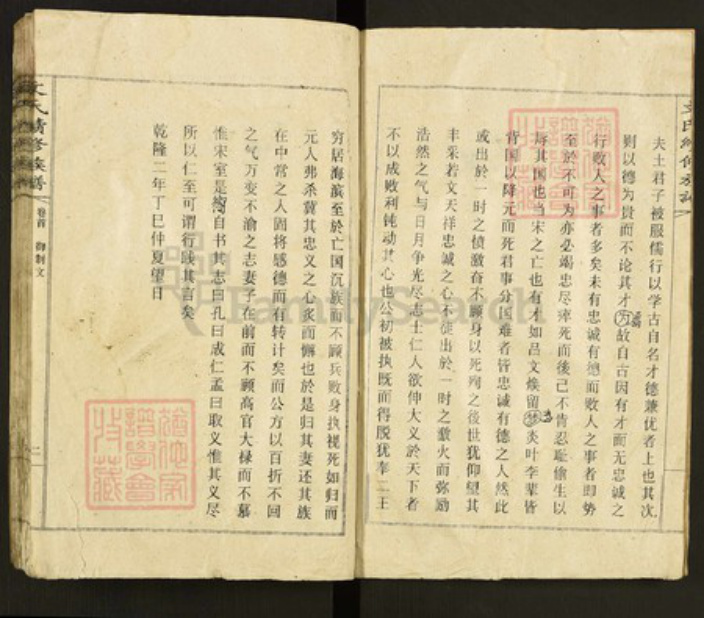 夫士君子被服儒行以学古自名才德兼优者上也其次
则以德为贵而不论其才 故自古因有才而无忠诚之
行败人之事者多矣未有忠诚有德而败人之事者即势
至於不可为亦必竭忠尽瘁死而後己不肯忍耻偷生以
其国也当宋之亡也有才如吕文焕留梦炎叶李辈皆
背国以降元而死君事分国难者皆忠诚有德之人然此
或出於一时之愤激奋不顾身以死殉之後世犹仰望其
丰采若文天祥忠诚之心不徒出於一时之激火而弥励
浩然之气与日月争光尽志士仁人欲伸大义於天下者
不以成败利钝动其心也公初被执既而得脱犹奉二王
文氏續修族譜
卷首 御制文
二
穷居海滨至於亡国沉族而不顾兵败身执视死如归而
元人弗杀冀其忠义之心炙而懈也於是归其妻还其族
在中常之人固将感德而有转计矣而公方以百折不回
之气万变不渝之志妻子在前而不顾高官大禄而不慕
惟宋室是 自书其志曰孔曰成仁孟曰取义惟其义尽
所以仁至可谓行践其言矣
乾隆二年丁巳仲夏望日
FamilySearch